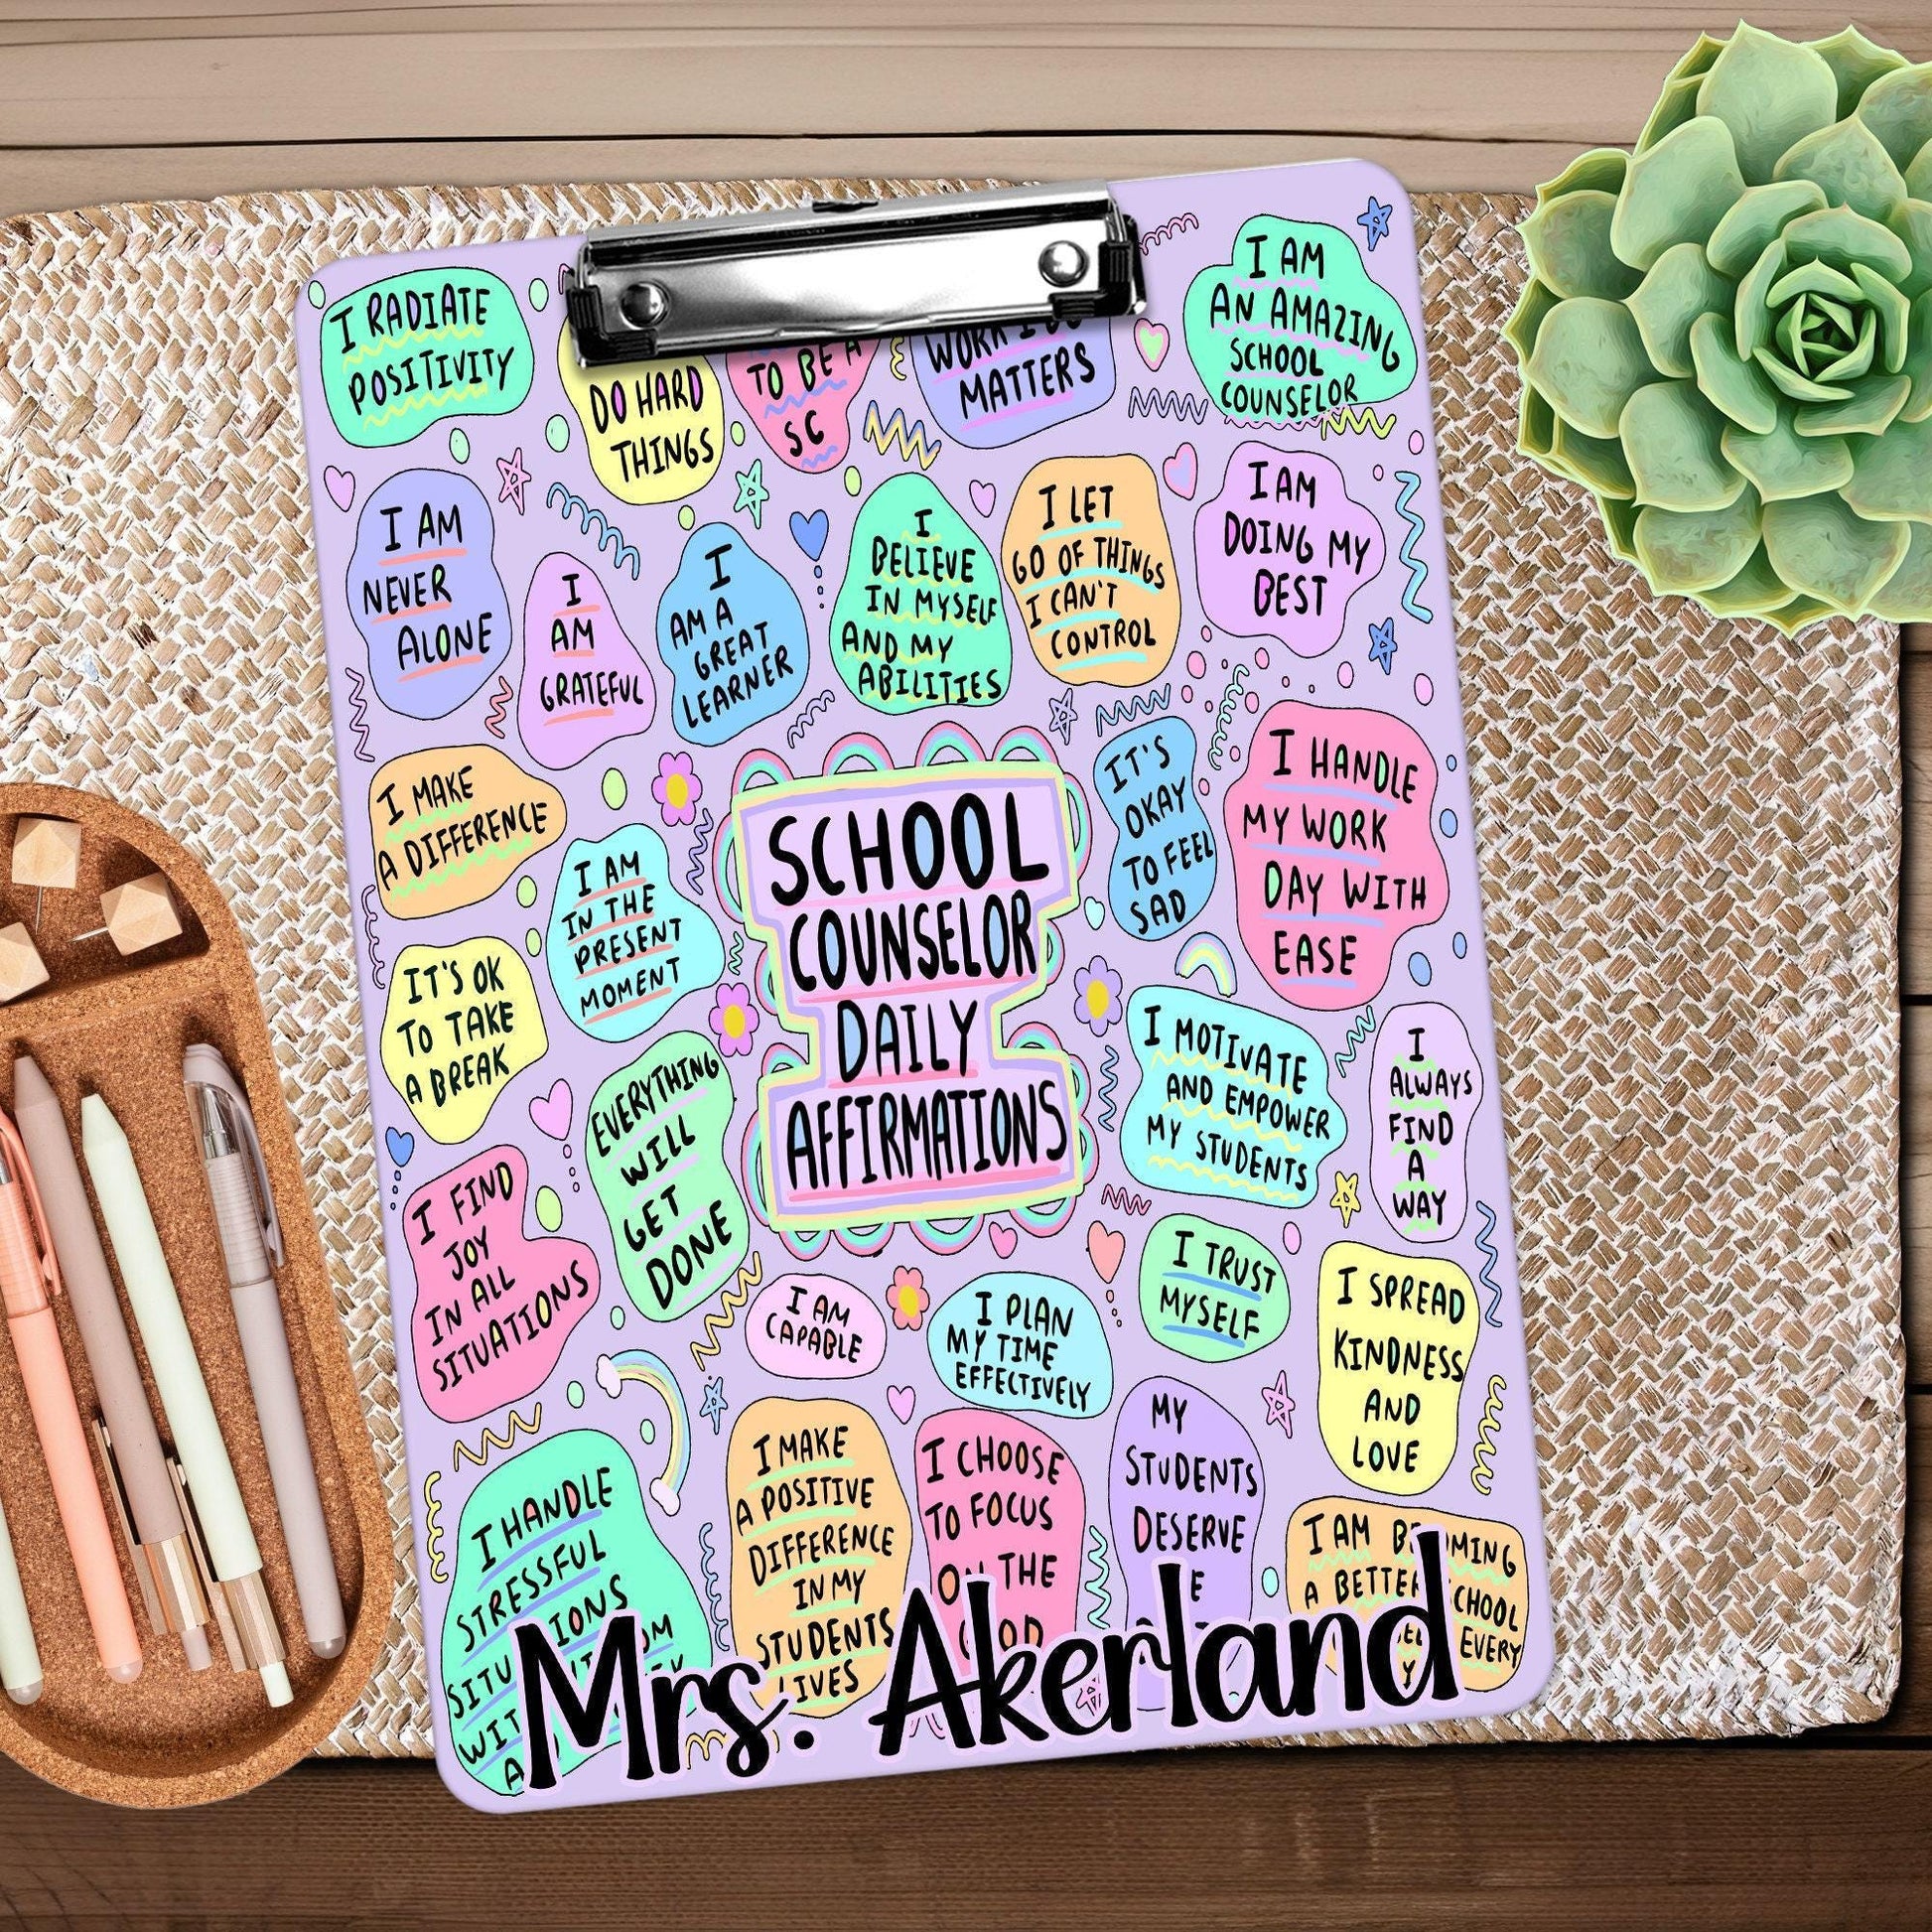 I RADIATE
POSITIVITY
DO HARD
THINGS
TO BE A
SC
WORK I DO
MATTERS
I AM
AN AMAZING
SCHOOL
COUNSELOR
I AM
NEVER
ALONE
I
AM
GRATEFUL
I
AM A
GREAT
LEARNER
I
BELIEVE
IN MYSELF
AND MY
ABILITIES
I LET
GO OF THINGS
I CAN'T
CONTROL
I AM
DOING MY
BEST
I MAKE
A DIFFERENCE
I AM
IN THE
PRESENT
MOMENT
SCHOOL
COUNSELOR
DAILY
AFFIRMATIONS
IT'S
OKAY
TO FEEL
SAD
I HANDLE
MY WORK
DAY WITH
EASE
IT'S OK
TO TAKE
A BREAK
EVERYTHING
WILL
GET
DONE
I MOTIVATE
AND EMPOWER
MY STUDENTS
I
ALWAYS
FIND
A
WAY
I FIND
JOY
IN ALL
SITUATIONS
I AM
CAPABLE
I PLAN
MY TIME
EFFECTIVELY
I TRUST
MYSELF
I SPREAD
KINDNESS
AND
LOVE
I HANDLE
STRESSFUL
I MAKE
A POSITIVE
DIFFERENCE
IN MY
STUDENTS
LIVES
I CHOOSE
TO FOCUS
ON THE
GOOD
MY
STUDENTS
DESERVE
I AM BECOMING
A BETTER SCHOOL
EVERY
Mrs. Akerland